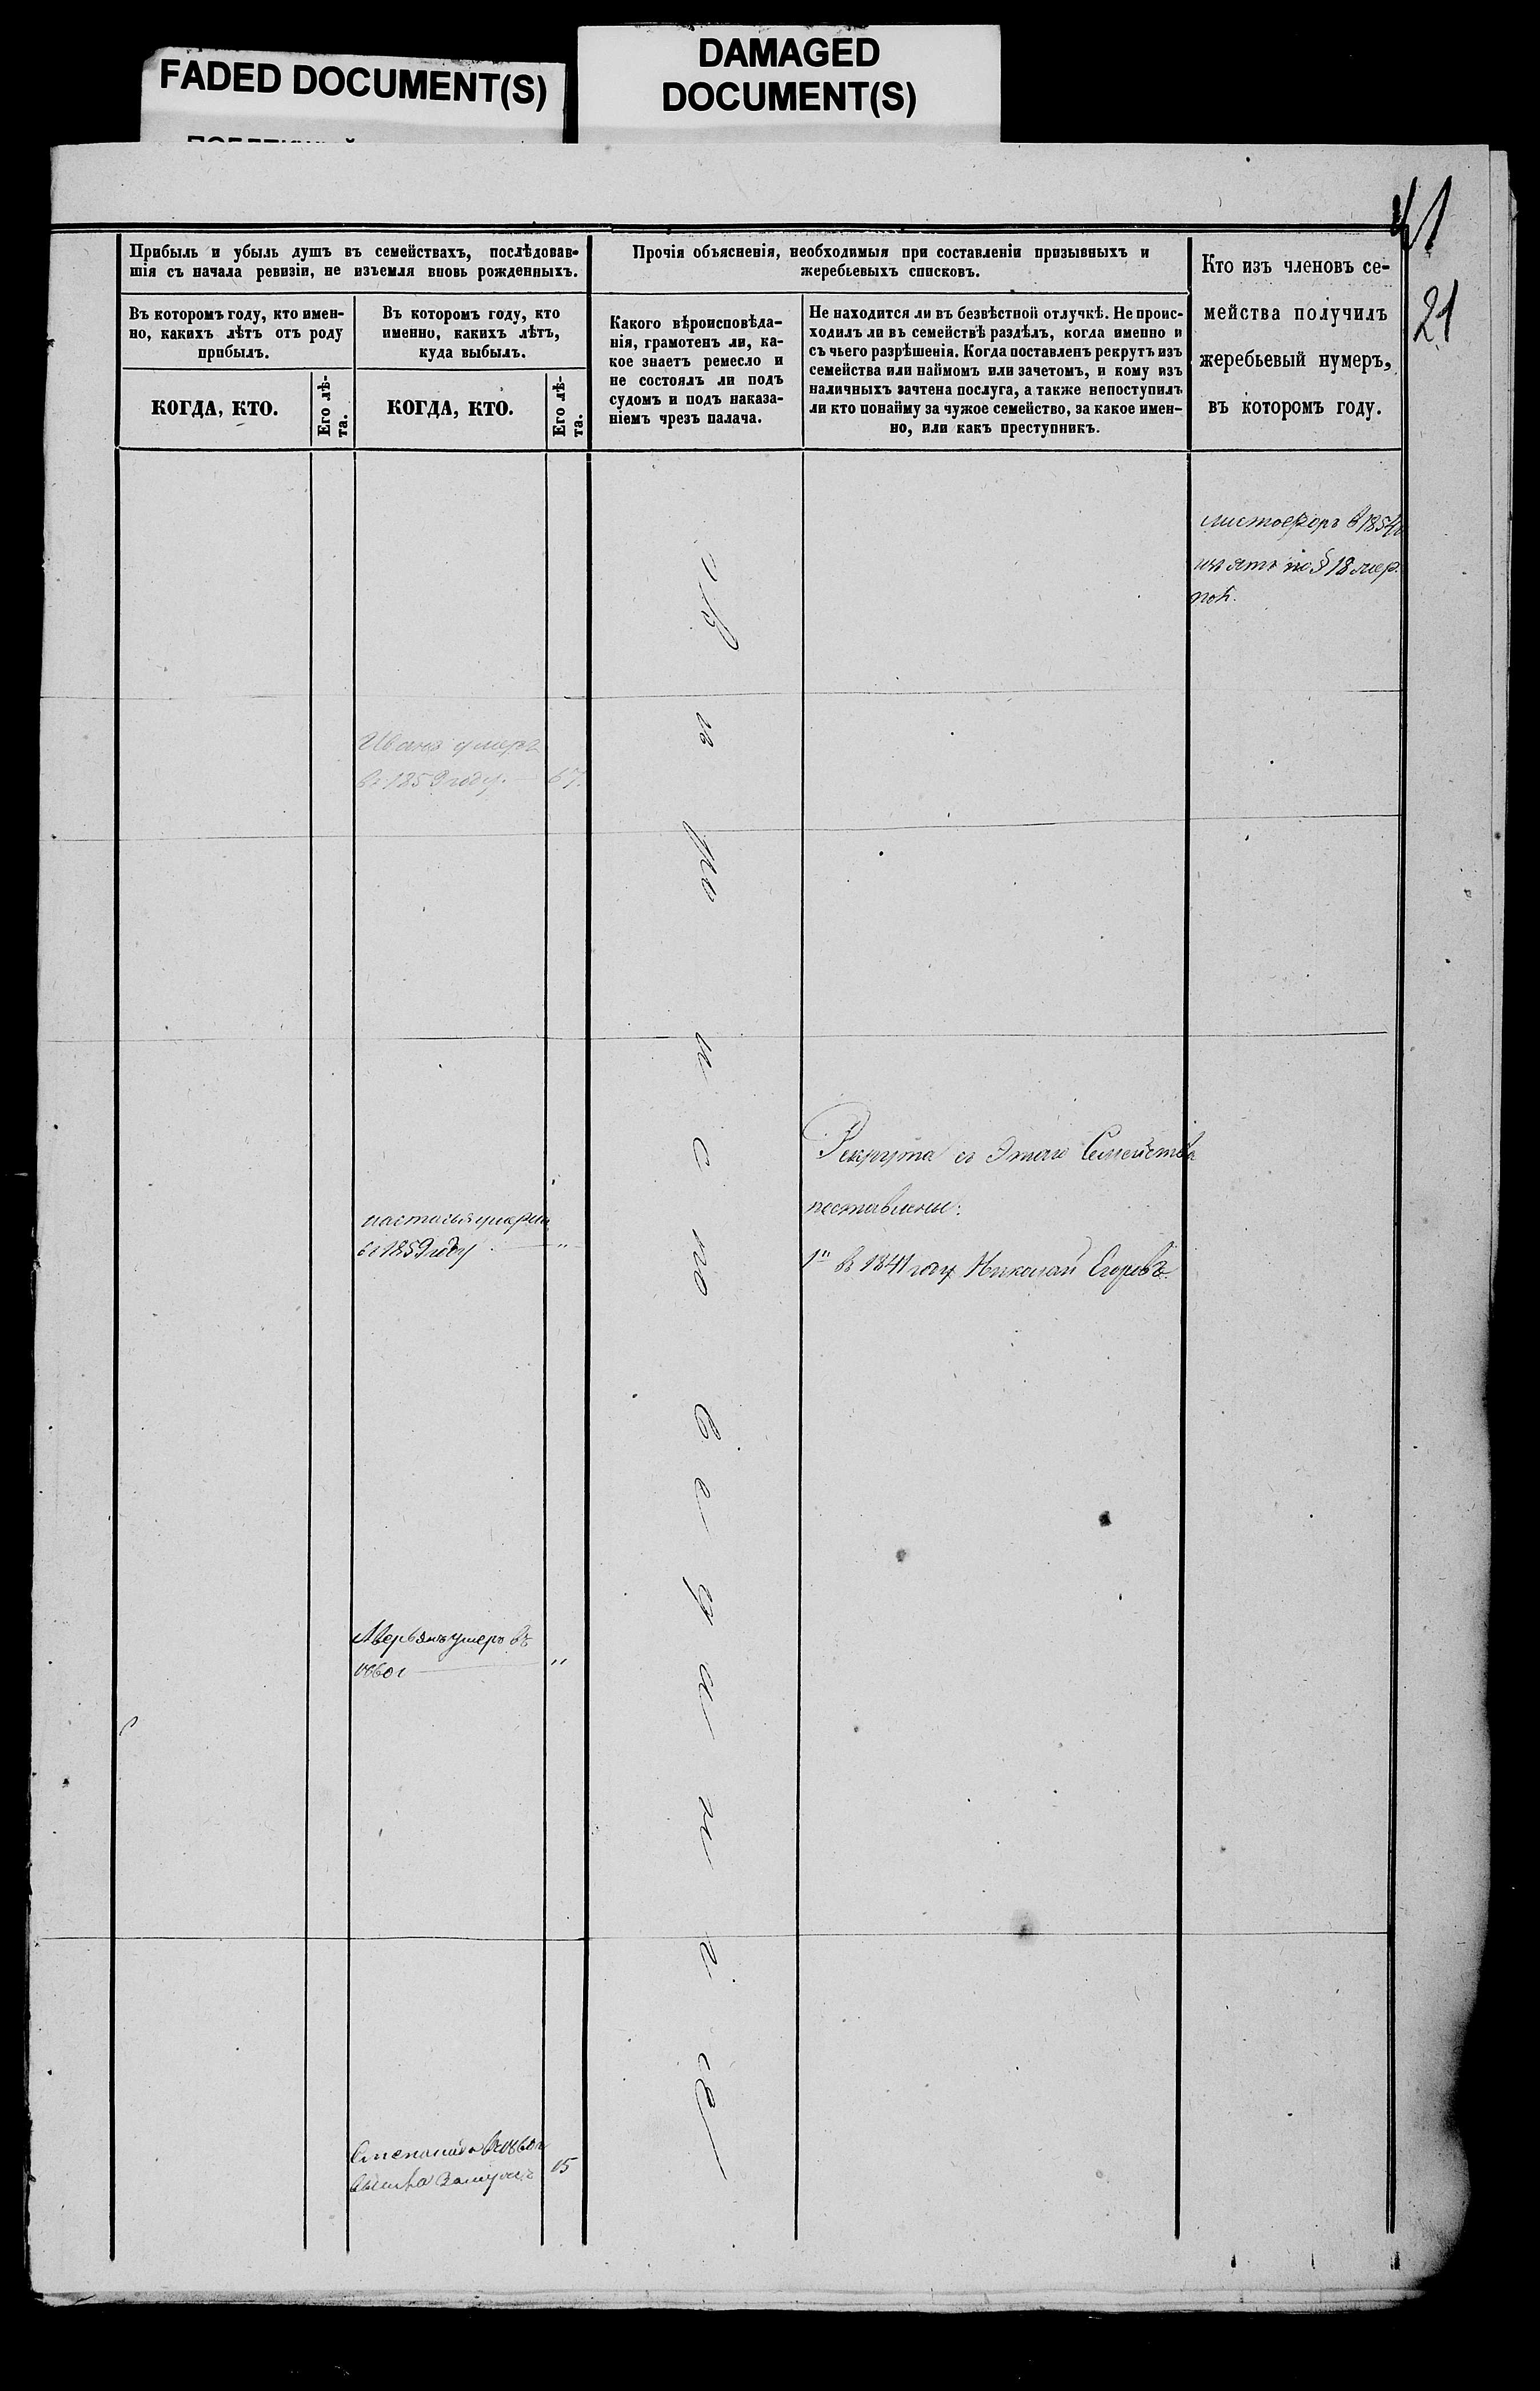 FADED DOCUMENT(S)
DAMAGED
DOCUMENT(S)
41
21
Прибыль и убыль душъ въ семействахъ, послѣдовав-
шія съ начала ревизіи, не изъемля вновь рожденныхъ.
Въ которомъ году, кто имен-
но, какихъ лѣтъ отъ роду
прибылъ.
КОГДА, КТО.
Его лѣ-
та.
Въ которомъ году, кто
именно, какихъ лѣтъ,
куда выбылъ.
КОГДА, КТО.
Его лѣ-
та.
Прочія объясненія, необходимыя при составленіи призывныхъ и
жеребьевыхъ списковъ.
Какого вѣроисповѣда-
нія, грамотенъ ли, ка-
кое знаетъ ремесло и
не состоялъ ли подъ
судомъ и подъ наказа-
ніемъ чрезъ палача.
Не находится ли въ безвѣстной отлучкѣ. Не проис-
ходилъ ли въ семействѣ раздѣлъ, когда именно и
съ чьего разрѣшенія. Когда поставленъ рекрутъ изъ
семейства или наймомъ или зачетомъ, и кому изъ
наличныхъ зачтена послуга, а также непоступилъ
ли кто понайму за чужое семейство, за какое имен-
но, или какъ преступникъ.
Кто изъ членовъ се-
мейства получилъ
жеребьевый нумеръ,
въ которомъ году.
в 1854
по § 18
Иванъ умеръ
въ 1859 году. 67.
Рекрута съ Этаго Семейства
поставлены:
настасья умерла
въ 1859 году "
1й въ 1841 году Николай Егоровъ.
Аверьянъ умеръ въ
1860 г "
въ 1860 г
замужъ 15